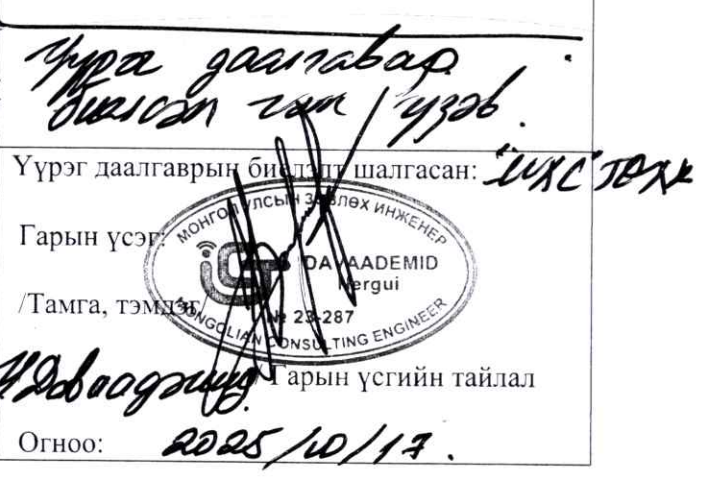 Үүрэг даалгавар
биелсэн гэж үзэв.
Үүрэг даалгаврын биелэлт шалгасан: "МХС" ТӨХК
Гарын үсэг:
/Тамга, тэмдэг
МОНГОЛ УЛСЫН ЗӨВЛӨХ ИНЖЕНЕР
DAVAADEMID
Nergui
№ 23-287
MONGOLIAN CONSULTING ENGINEER
Н.Даваадэмид / Гарын үсгийн тайлал
Огноо: 2025/10/17.